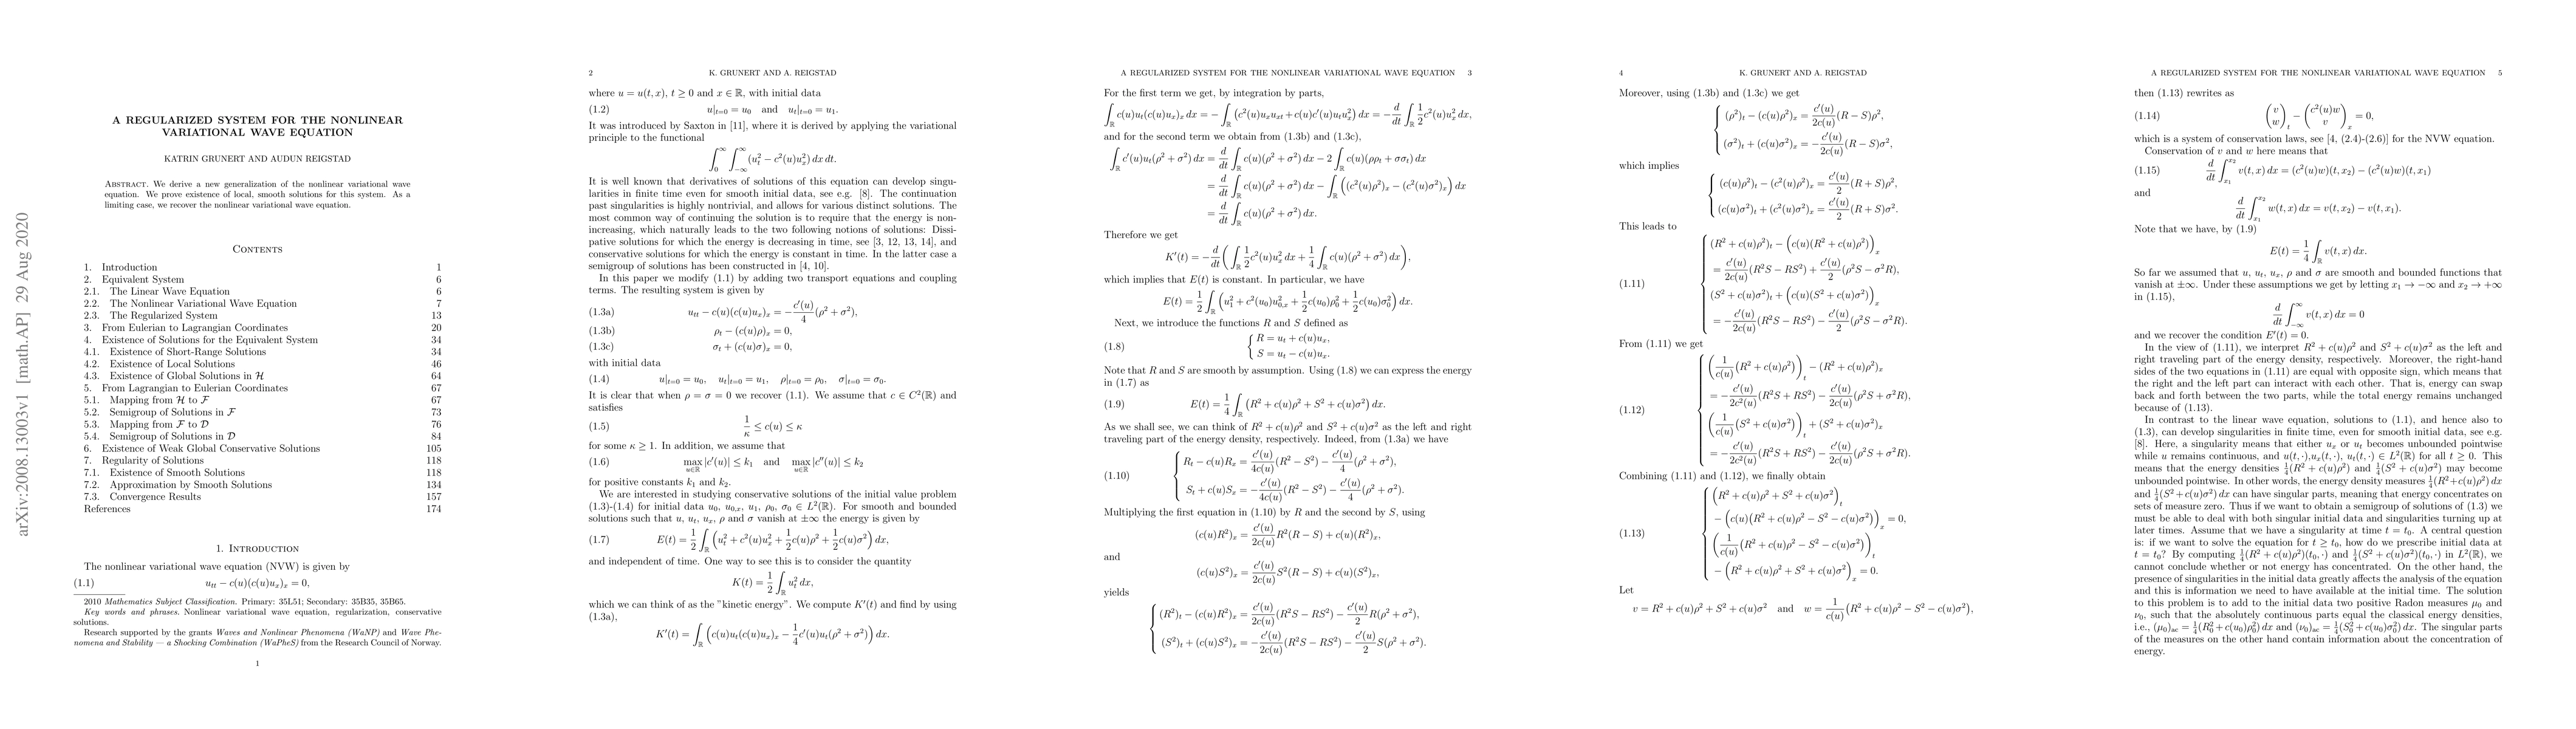 arXiv:2008.13003v1 [math.AP] 29 Aug 2020
A REGULARIZED SYSTEM FOR THE NONLINEAR
VARIATIONAL WAVE EQUATION
KATRIN GRUNERT AND AUDUN REIGSTAD
Abstract. We derive a new generalization of the nonlinear variational wave
equation. We prove existence of local, smooth solutions for this system. As a
limiting case, we recover the nonlinear variational wave equation.
Contents
1. Introduction 1
2. Equivalent System 6
2.1. The Linear Wave Equation 6
2.2. The Nonlinear Variational Wave Equation 7
2.3. The Regularized System 13
3. From Eulerian to Lagrangian Coordinates 20
4. Existence of Solutions for the Equivalent System 34
4.1. Existence of Short-Range Solutions 34
4.2. Existence of Local Solutions 46
4.3. Existence of Global Solutions in H 64
5. From Lagrangian to Eulerian Coordinates 67
5.1. Mapping from H to F 67
5.2. Semigroup of Solutions in F 73
5.3. Mapping from F to D 76
5.4. Semigroup of Solutions in D 84
6. Existence of Weak Global Conservative Solutions 105
7. Regularity of Solutions 118
7.1. Existence of Smooth Solutions 118
7.2. Approximation by Smooth Solutions 134
7.3. Convergence Results 157
References 174
1. Introduction
The nonlinear variational wave equation (NVW) is given by
(1.1) u_tt − c(u)(c(u)u_x)_x = 0,
2010 Mathematics Subject Classification. Primary: 35L51; Secondary: 35B35, 35B65.
Key words and phrases. Nonlinear variational wave equation, regularization, conservative
solutions.
Research supported by the grants Waves and Nonlinear Phenomena (WaNP) and Wave Phe-
nomena and Stability — a Shocking Combination (WaPheS) from the Research Council of Norway.
1
2 K. GRUNERT AND A. REIGSTAD
where u = u(t, x), t ≥ 0 and x ∈ ℝ, with initial data
(1.2) u|_{t=0} = u_0 and u_t|_{t=0} = u_1.
It was introduced by Saxton in [11], where it is derived by applying the variational
principle to the functional
∫_0^∞ ∫_{−∞}^∞ (u_t^2 − c^2(u)u_x^2) dx dt.
It is well known that derivatives of solutions of this equation can develop singu-
larities in finite time even for smooth initial data, see e.g. [8]. The continuation
past singularities is highly nontrivial, and allows for various distinct solutions. The
most common way of continuing the solution is to require that the energy is non-
increasing, which naturally leads to the two following notions of solutions: Dissi-
pative solutions for which the energy is decreasing in time, see [3, 12, 13, 14], and
conservative solutions for which the energy is constant in time. In the latter case a
semigroup of solutions has been constructed in [4, 10].
In this paper we modify (1.1) by adding two transport equations and coupling
terms. The resulting system is given by
(1.3a) u_tt − c(u)(c(u)u_x)_x = −c′(u)/4 (ρ^2 + σ^2),
(1.3b) ρ_t − (c(u)ρ)_x = 0,
(1.3c) σ_t + (c(u)σ)_x = 0,
with initial data
(1.4) u|_{t=0} = u_0, u_t|_{t=0} = u_1, ρ|_{t=0} = ρ_0, σ|_{t=0} = σ_0.
It is clear that when ρ = σ = 0 we recover (1.1). We assume that c ∈ C^2(ℝ) and
satisfies
(1.5) 1/κ ≤ c(u) ≤ κ
for some κ ≥ 1. In addition, we assume that
(1.6) max_{u∈ℝ} |c′(u)| ≤ k_1 and max_{u∈ℝ} |c″(u)| ≤ k_2
for positive constants k_1 and k_2.
We are interested in studying conservative solutions of the initial value problem
(1.3)-(1.4) for initial data u_0, u_{0,x}, u_1, ρ_0, σ_0 ∈ L^2(ℝ). For smooth and bounded
solutions such that u, u_t, u_x, ρ and σ vanish at ±∞ the energy is given by
(1.7) E(t) = 1/2 ∫_ℝ (u_t^2 + c^2(u)u_x^2 + 1/2 c(u)ρ^2 + 1/2 c(u)σ^2) dx,
and independent of time. One way to see this is to consider the quantity
K(t) = 1/2 ∫_ℝ u_t^2 dx,
which we can think of as the "kinetic energy". We compute K′(t) and find by using
(1.3a),
K′(t) = ∫_ℝ (c(u)u_t(c(u)u_x)_x − 1/4 c′(u)u_t(ρ^2 + σ^2)) dx.
A REGULARIZED SYSTEM FOR THE NONLINEAR VARIATIONAL WAVE EQUATION 3
For the first term we get, by integration by parts,
∫_ℝ c(u)u_t(c(u)u_x)_x dx = −∫_ℝ (c^2(u)u_x u_xt + c(u)c′(u)u_t u_x^2) dx = −d/dt ∫_ℝ 1/2 c^2(u)u_x^2 dx,
and for the second term we obtain from (1.3b) and (1.3c),
∫_ℝ c′(u)u_t(ρ^2 + σ^2) dx = d/dt ∫_ℝ c(u)(ρ^2 + σ^2) dx − 2 ∫_ℝ c(u)(ρρ_t + σσ_t) dx
= d/dt ∫_ℝ c(u)(ρ^2 + σ^2) dx − ∫_ℝ ((c^2(u)ρ^2)_x − (c^2(u)σ^2)_x) dx
= d/dt ∫_ℝ c(u)(ρ^2 + σ^2) dx.
Therefore we get
K′(t) = −d/dt (∫_ℝ 1/2 c^2(u)u_x^2 dx + 1/4 ∫_ℝ c(u)(ρ^2 + σ^2) dx),
which implies that E(t) is constant. In particular, we have
E(t) = 1/2 ∫_ℝ (u_1^2 + c^2(u_0)u_{0,x}^2 + 1/2 c(u_0)ρ_0^2 + 1/2 c(u_0)σ_0^2) dx.
Next, we introduce the functions R and S defined as
(1.8) { R = u_t + c(u)u_x,
S = u_t − c(u)u_x.
Note that R and S are smooth by assumption. Using (1.8) we can express the energy
in (1.7) as
(1.9) E(t) = 1/4 ∫_ℝ (R^2 + c(u)ρ^2 + S^2 + c(u)σ^2) dx.
As we shall see, we can think of R^2 + c(u)ρ^2 and S^2 + c(u)σ^2 as the left and right
traveling part of the energy density, respectively. Indeed, from (1.3a) we have
(1.10) { R_t − c(u)R_x = c′(u)/4c(u) (R^2 − S^2) − c′(u)/4 (ρ^2 + σ^2),
S_t + c(u)S_x = −c′(u)/4c(u) (R^2 − S^2) − c′(u)/4 (ρ^2 + σ^2).
Multiplying the first equation in (1.10) by R and the second by S, using
(c(u)R^2)_x = c′(u)/2c(u) R^2(R − S) + c(u)(R^2)_x,
and
(c(u)S^2)_x = c′(u)/2c(u) S^2(R − S) + c(u)(S^2)_x,
yields
{ (R^2)_t − (c(u)R^2)_x = c′(u)/2c(u) (R^2S − RS^2) − c′(u)/2 R(ρ^2 + σ^2),
(S^2)_t + (c(u)S^2)_x = −c′(u)/2c(u) (R^2S − RS^2) − c′(u)/2 S(ρ^2 + σ^2).
4 K. GRUNERT AND A. REIGSTAD
Moreover, using (1.3b) and (1.3c) we get
{ (ρ^2)_t − (c(u)ρ^2)_x = c′(u)/2c(u) (R − S)ρ^2,
(σ^2)_t + (c(u)σ^2)_x = −c′(u)/2c(u) (R − S)σ^2,
which implies
{ (c(u)ρ^2)_t − (c^2(u)ρ^2)_x = c′(u)/2 (R + S)ρ^2,
(c(u)σ^2)_t + (c^2(u)σ^2)_x = c′(u)/2 (R + S)σ^2.
This leads to
(1.11) { (R^2 + c(u)ρ^2)_t − (c(u)(R^2 + c(u)ρ^2))_x
= c′(u)/2c(u) (R^2S − RS^2) + c′(u)/2 (ρ^2S − σ^2R),
(S^2 + c(u)σ^2)_t + (c(u)(S^2 + c(u)σ^2))_x
= −c′(u)/2c(u) (R^2S − RS^2) − c′(u)/2 (ρ^2S − σ^2R).
From (1.11) we get
(1.12) { (1/c(u) (R^2 + c(u)ρ^2))_t − (R^2 + c(u)ρ^2)_x
= −c′(u)/2c^2(u) (R^2S + RS^2) − c′(u)/2c(u) (ρ^2S + σ^2R),
(1/c(u) (S^2 + c(u)σ^2))_t + (S^2 + c(u)σ^2)_x
= −c′(u)/2c^2(u) (R^2S + RS^2) − c′(u)/2c(u) (ρ^2S + σ^2R).
Combining (1.11) and (1.12), we finally obtain
(1.13) { (R^2 + c(u)ρ^2 + S^2 + c(u)σ^2)_t
− (c(u)(R^2 + c(u)ρ^2 − S^2 − c(u)σ^2))_x = 0,
(1/c(u) (R^2 + c(u)ρ^2 − S^2 − c(u)σ^2))_t
− (R^2 + c(u)ρ^2 + S^2 + c(u)σ^2)_x = 0.
Let
v = R^2 + c(u)ρ^2 + S^2 + c(u)σ^2 and w = 1/c(u) (R^2 + c(u)ρ^2 − S^2 − c(u)σ^2),
A REGULARIZED SYSTEM FOR THE NONLINEAR VARIATIONAL WAVE EQUATION 5
then (1.13) rewrites as
(1.14) (v w)_t − (c^2(u)w v)_x = 0,
which is a system of conservation laws, see [4, (2.4)-(2.6)] for the NVW equation.
Conservation of v and w here means that
(1.15) d/dt ∫_{x_1}^{x_2} v(t, x) dx = (c^2(u)w)(t, x_2) − (c^2(u)w)(t, x_1)
and
d/dt ∫_{x_1}^{x_2} w(t, x) dx = v(t, x_2) − v(t, x_1).
Note that we have, by (1.9)
E(t) = 1/4 ∫_ℝ v(t, x) dx.
So far we assumed that u, u_t, u_x, ρ and σ are smooth and bounded functions that
vanish at ±∞. Under these assumptions we get by letting x_1 → −∞ and x_2 → +∞
in (1.15),
d/dt ∫_{−∞}^∞ v(t, x) dx = 0
and we recover the condition E′(t) = 0.
In the view of (1.11), we interpret R^2 + c(u)ρ^2 and S^2 + c(u)σ^2 as the left and
right traveling part of the energy density, respectively. Moreover, the right-hand
sides of the two equations in (1.11) are equal with opposite sign, which means that
the right and the left part can interact with each other. That is, energy can swap
back and forth between the two parts, while the total energy remains unchanged
because of (1.13).
In contrast to the linear wave equation, solutions to (1.1), and hence also to
(1.3), can develop singularities in finite time, even for smooth initial data, see e.g.
[8]. Here, a singularity means that either u_x or u_t becomes unbounded pointwise
while u remains continuous, and u(t, ·),u_x(t, ·), u_t(t, ·) ∈ L^2(ℝ) for all t ≥ 0. This
means that the energy densities 1/4(R^2 + c(u)ρ^2) and 1/4(S^2 + c(u)σ^2) may become
unbounded pointwise. In other words, the energy measures 1/4(R^2+c(u)ρ^2) dx
and 1/4(S^2+c(u)σ^2) dx can have singular parts, meaning that energy concentrates on
sets of measure zero. Thus if we want to obtain a semigroup of solutions of (1.3) we
must be able to deal with both singular initial data and singularities turning up at
later times. Assume that we have a singularity at time t = t_0. A central question
is: if we want to solve the equation for t ≥ t_0, how do we prescribe initial data at
t = t_0? By computing 1/4(R^2 + c(u)ρ^2)(t_0, ·) and 1/4(S^2 + c(u)σ^2)(t_0, ·) in L^2(ℝ), we
cannot conclude whether or not energy has concentrated. On the other hand, the
presence of singularities in the initial data greatly affects the analysis of the equation
and this is information we need to have available at the initial time. The solution
to this problem is to add to the initial data two positive Radon measures μ_0 and
ν_0, such that the absolutely continuous parts equal the classical energy densities,
i.e., (μ_0)_ac = 1/4(R_0^2 + c(u_0)ρ_0^2) dx and (ν_0)_ac = 1/4(S_0^2 + c(u_0)σ_0^2) dx. The singular parts
of the measures on the other hand contain information about the concentration of
energy.